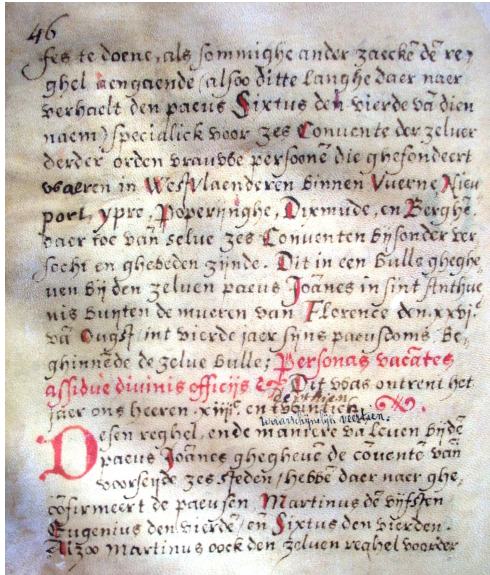 46
fes te doene, als sommighe ander zaeckē dē re,
ghel aengaende (alsoo ditte langhe daer naer
verhaelt den paeus Sixtus den vierde vā dien
naem) specialick voor zes Convente der zelver
derder orden vrauwe persoonē die ghefondeert
waeren in Westvlaenderen binnen Vuerne, Nieu
port, ypre, Poperijnghe, Dixmude, en Berghe.
daer toe van selve zes Conventen bijsonder ver
socht en ghebeden zijnde. Dit in een bulle gheghe,
ven bij den zelven paeus Joānes in sint Anthue
nis buyten de mueren van Florence den.xxvj.
vā Ougst int vierde jaer sijns paeusdoms, Be,
ghinnēde de zelve bulle; Personas vacātes
assidue divinis officijs &c. Dit was ontrent het
derthien
jaer ons heeren .xiiijc. en twintich.
waarschijnlijk veertien.
Desen reghel, ende maniere vā leven bijdē
paeus Joānes gheghevē de covente van
voorseyde zes steden / hebbē daer naer ghe,
cōfirmeert de paeusen, Martinus dē vijfsten
Eugenius den vierde, en Sixtus den vierden.
Alzoo Martinus oock den zelven reghel voorder